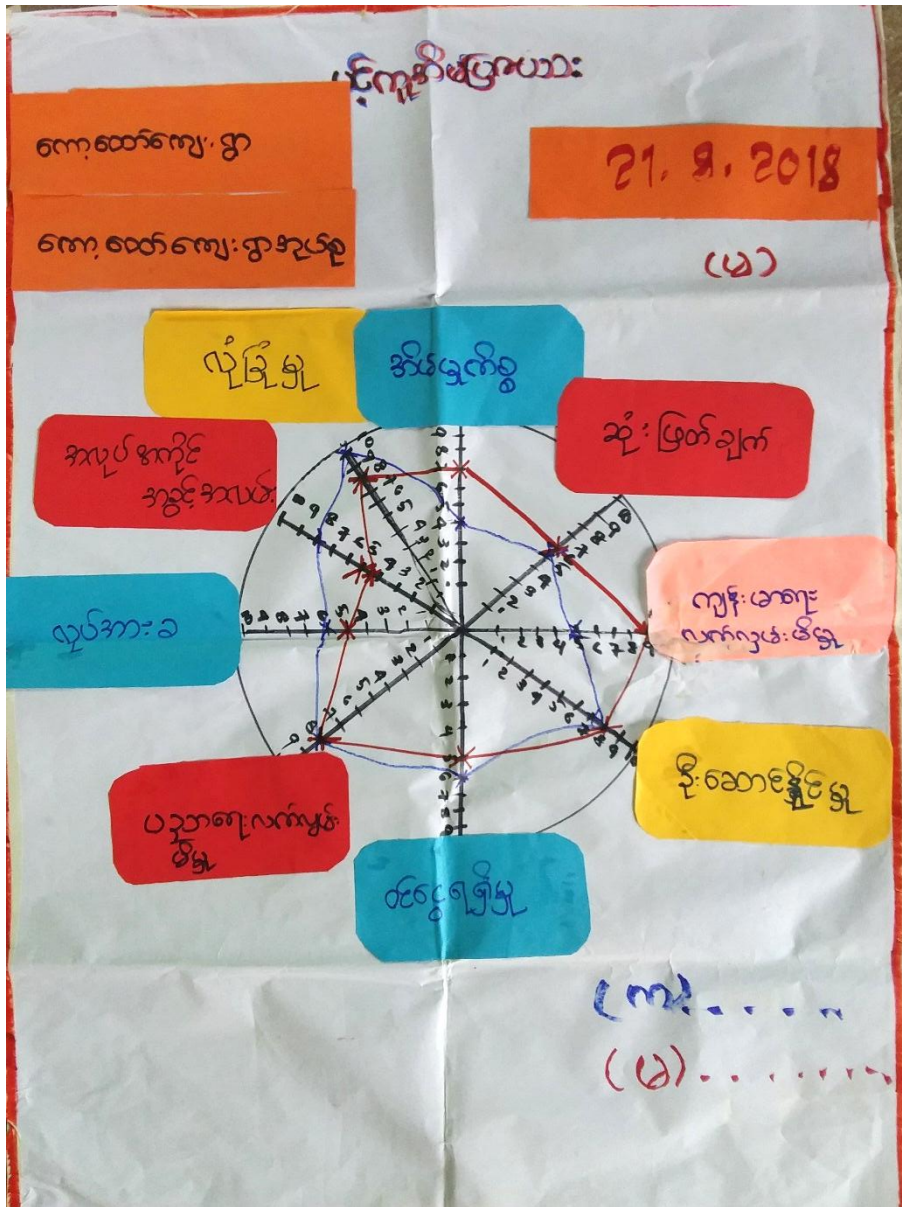 ပင့်ကူအိမ်ပြဇယား
ကော့ထော်ကျေးရွာ
21. 8. 2018
ကော့ထော်ကျေးရွာအုပ်စု
(မ)
လုံခြုံမှု
အိမ်မှုကိစ္စ
ဆုံးဖြတ်ချက်
အလုပ်အကိုင်
အခွင့်အလမ်း
ကျန်းမာရေး
လက်လှမ်းမီမှု
လုပ်အားခ
ဦးဆောင်နိုင်မှု
ပညာရေးလက်လှမ်း
မီမှု
ဝင်ငွေရရှိမှု
(ကျား) . . . . .
(မ) . . . . . . . .